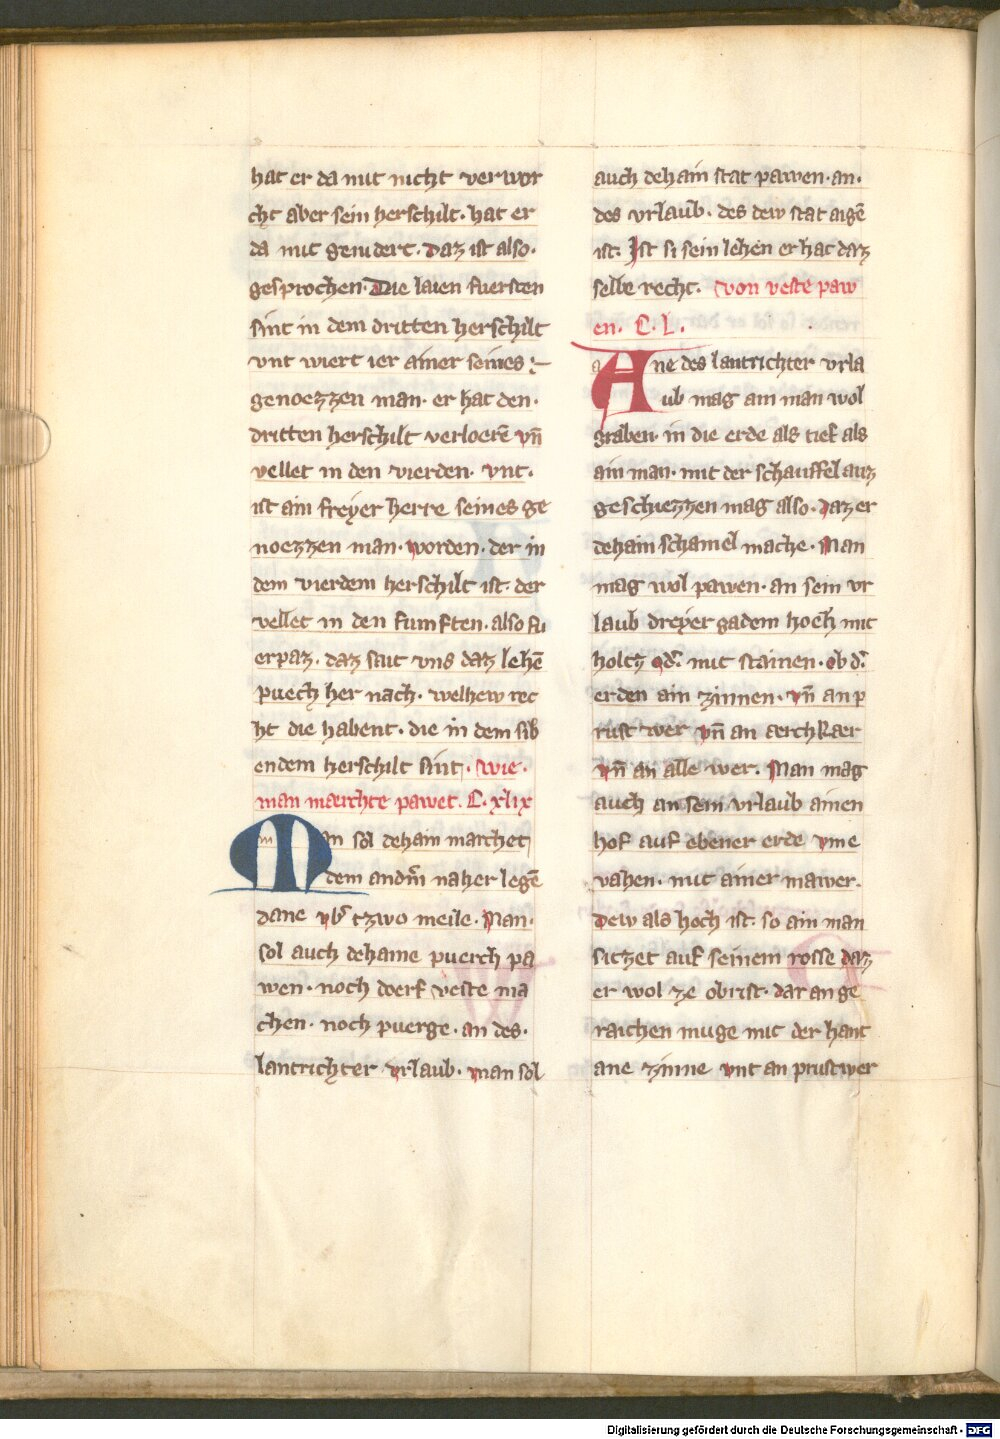 hat er da mit nicht verwor
cht aber sein herschilt· hat er
da mit genidert. Daz ist also·
gesprochen· Die laien fuersten
sint in dem dritten herschilt
vnt wiert ier ainer seines
genoezzen man· er hat den·
dritten herschilt verloerē vn̄
vellet in den vierden· vnt·
ist ain freyer herre seines ge
noezzen man· worden· der in
dem vierdem herschilt ist· der
vellet in den fumften· also fu
erpaz· daz sait vns daz lehē
puech her nach· welhew rec
ht die habent· die in dem sib
endem herschilt sint· wie·
man maerchte pawet· C· xlix
Man sol dehain marchet
dem andm̄ naher legē
dane vb̄ tzwo meile· Man·
sol auch dehaine puerch pa
wen· noch doerf veste ma
chen· noch puerge· an des·
lantrichter vrlaub· man sol
auch dehain stat pawen· an·
des vrlaub· des dew stat aigē
ist· Ist si sein lehen er hat daz
selbe recht· von veste paw
en· C· L·
Ane des lantrichter vrla
ub mag ain man wol
graben· in die erde als tief als
ain man· mit der schauffel auz
geschiezzen mag also· daz er
dehain schamel mache· Man
mag wol pawen· an sein vr
laub dreyer gadem hoch mit
holtz od̄ mit stainen· ob d̄
erden ain zinnen· vn̄ an p
rust wer vn̄ an aerchkaer
vn̄ an alle wer· Man mag
auch an sein vrlaub ainen
hof auf ebener erde vme
vahen· mit ainer mawer·
dew als hoch ist· so ain man
sitzet auf seinem rosse daz
er wol ze obrist· dar an ge
raichen muge mit der hant
ane zinne vnt an prustwer
Digitalisierung gefördert durch die Deutsche Forschungsgemeinschaft - DFG